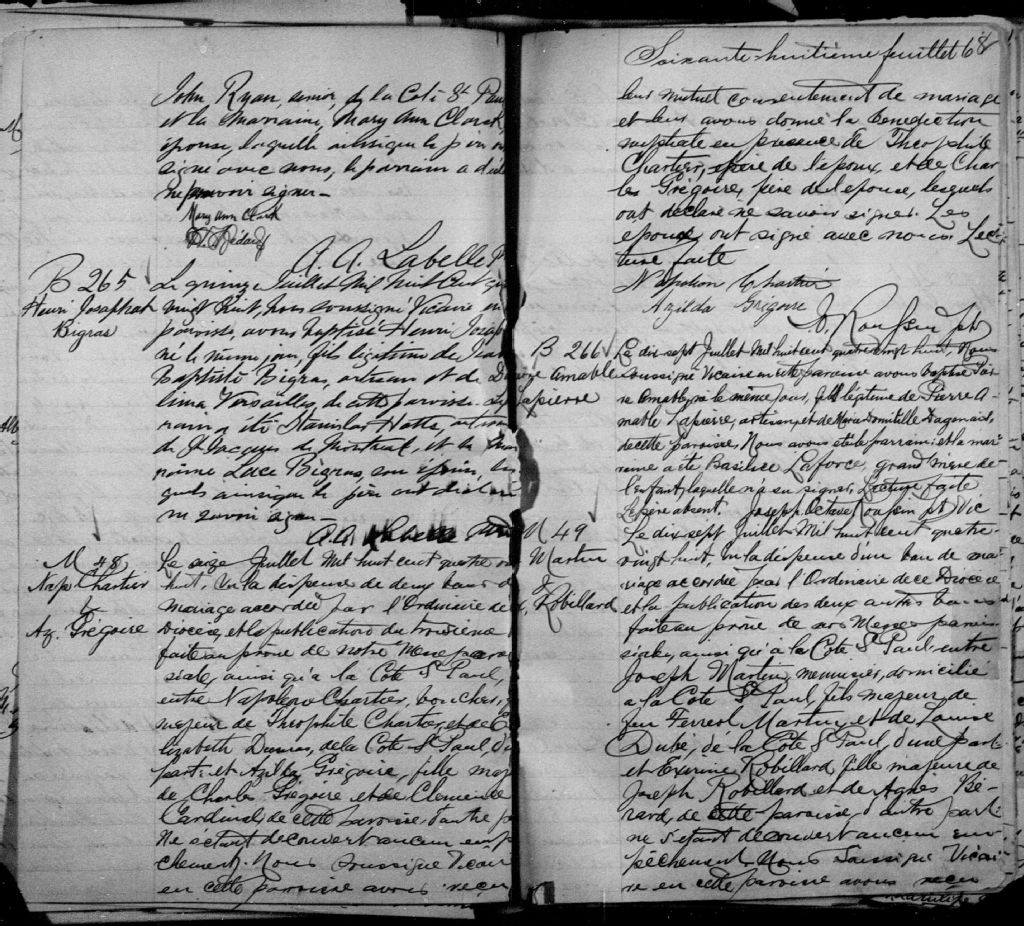 John Ryan, senior, de la Côte St Pau
et la marraine, Mary Ann Clark
épouse, laquelle ainsique le père
signé avec nous, le parrain a déc
ne pouvoir signer —
Mary Ann Clark
Bédard
A. A. Labelle P
B 265
Henri Josaphat
Bigras
Le quinze Juillet Mil huit Cent qua
vingt huit, nous soussigné Vicaire en
paroisse, avons baptisé Henri Josap
né le même jour, fils légitime de Jean
Baptiste Bigras, artisan et de
lima Versailles, de cette paroisse. Le
rain a été Stanislas Hotte, artisan
de St Jacques de Montréal, et la
raine Lucie Bigras, son épouse, les
quels ainsique le père ont déclaré
ne savoir signer —
M 48
Nap. Chartier
&
Az. Grégoire
Le seize Juillet Mil huit cent quatre vi
huit, vu la dispense de deux bans de
mariage accordée par l'Ordinaire de
Diocèse, et la publication du troisième
faite au prône de notre Messe parois
siale, ainsi qu'à la Côte St Paul,
entre Napoléon Chartier, boucher,
majeur de Théophile Chartier, et de E
lizabeth Dumas, de la Côte St Paul, d'u
part; et Azilda Grégoire, fille maj
de Charles Grégoire et de Clémence
Cardinal, de cette paroisse d'autre p
Ne s'étant découvert aucun emp
chement. Nous Soussigné Vicair
en cette paroisse avons reçu
Soixante-huitième feuillet 68
leur mutuel consentement de mariage
et leur avons donné la bénédiction
nuptiale en présence de Théophile
Chartier, père de l'époux, et de Char
les Grégoire, père de l'épouse, lesquels
ont déclaré ne savoir signer. Les
époux ont signé avec nous. Lec
ture faite
Napoléon Chartier
Azilda Grégoire
B 266
Amable
Lapierre
Le dix-sept Juillet Mil huit cent quatre vingt huit, Nous
soussigné Vicaire en cette paroisse avons baptisé
Amable, né le même jour, fils légitime de Pierre A-
mable Lapierre, artisan, et de Marie Domitille Dagenais,
de cette paroisse. Nous avons été le parrain; et la mar
raine a été Basilice Laforce, grand'mère de
l'enfant, laquelle n'a su signer. Lecture faite
Le père absent. Joseph Octave Roussin pt Vic
M 49
Martin
&
Robillard
Le dix-sept Juillet Mil huit cent quatre-
vingt huit, vu la dispense d'un ban de ma-
riage accordée par l'Ordinaire de ce Diocèse
et la publication des deux autres bans
faite au prône de nos Messes parois
siales, ainsi qu'à la Côte St Paul, entre
Joseph Martin, menuisier, domicilié
à la Côte St Paul, fils majeur de
feu Ferréol Martin, et de Louise
Dubé, de la Côte St Paul, d'une part
et Exérine Robillard, fille majeure de
Joseph Robillard et de Agnès Bé-
rard, de cette paroisse, d'autre part
ne s'étant découvert aucun em-
pêchement. Nous Soussigné Vicai-
re en cette paroisse avons reçu